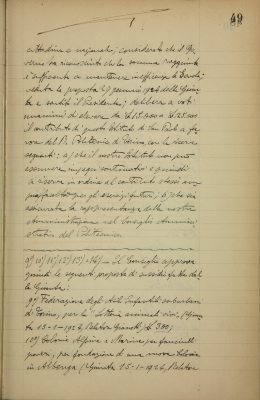 1
49
cittadina e regionale; considerato che il Go-
verno ha riconosciuto che la somma raggiunta
è sufficiente a mantenere in efficienza la Scuola;
veduta la proposta 29 gennaio 1924 della Giun-
ta e sentito il Presidente; delibera a voti
unanimi di elevare da £ 15.000 a £ 25.000
il contributo di questo Istituto di San Paolo a fa-
vore del R. Politecnico di Torino con le riserve
seguenti: a) che il nostro Istituto non può
assumere impegni continuativi e quindi
la riserva in ordine al contributo stesso
per gli esercizi futuri; b) che sia
assicurata la rappresentanza della nostra
Amministrazione nel Consiglio Ammini-
strativo del Politecnico.
9) 10) 11) 12) 13) 14) - Il Consiglio approva
quindi le seguenti proposte di sussidi fatte dal-
la Giunta:
9) Federazione degli Asili Infantili suburbani
di Torino, per (Giun-
ta 15-1-1924, Relatore £ 300;
10) Colonie Alpine e Marine per fanciulli
poveri, per fondazione di una nuova Colonia
in Albenga (Giunta 25-1-1924, Relatore